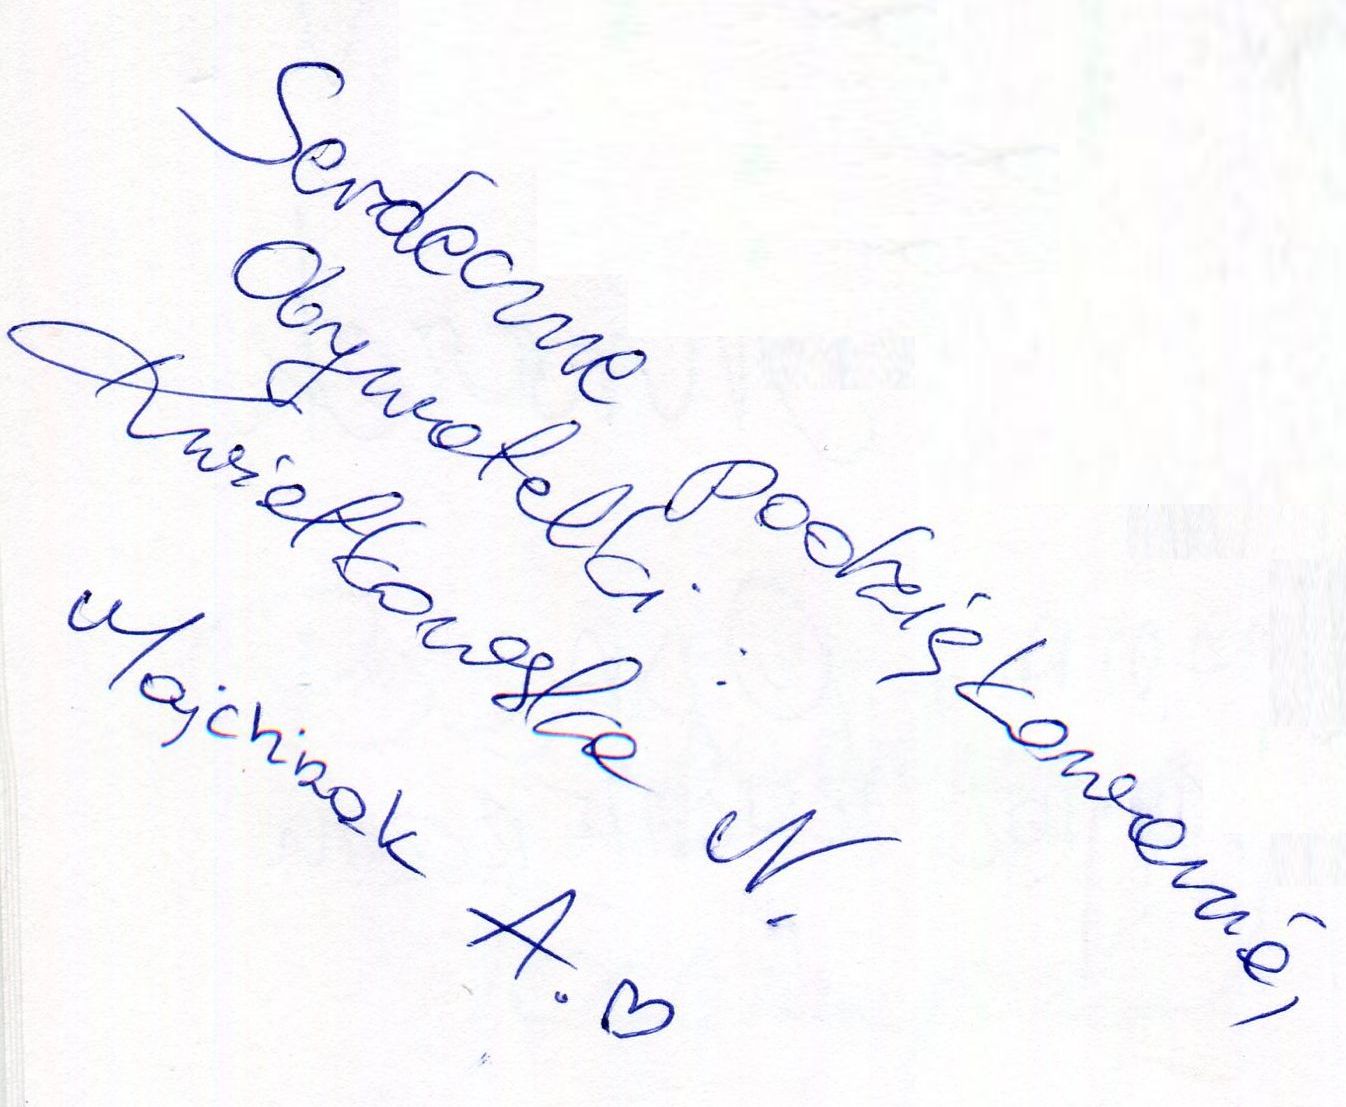 Serdeczne Podziękowanie,
Obywatelki :
Kwietkowska N.
Majchrzak A. ♡